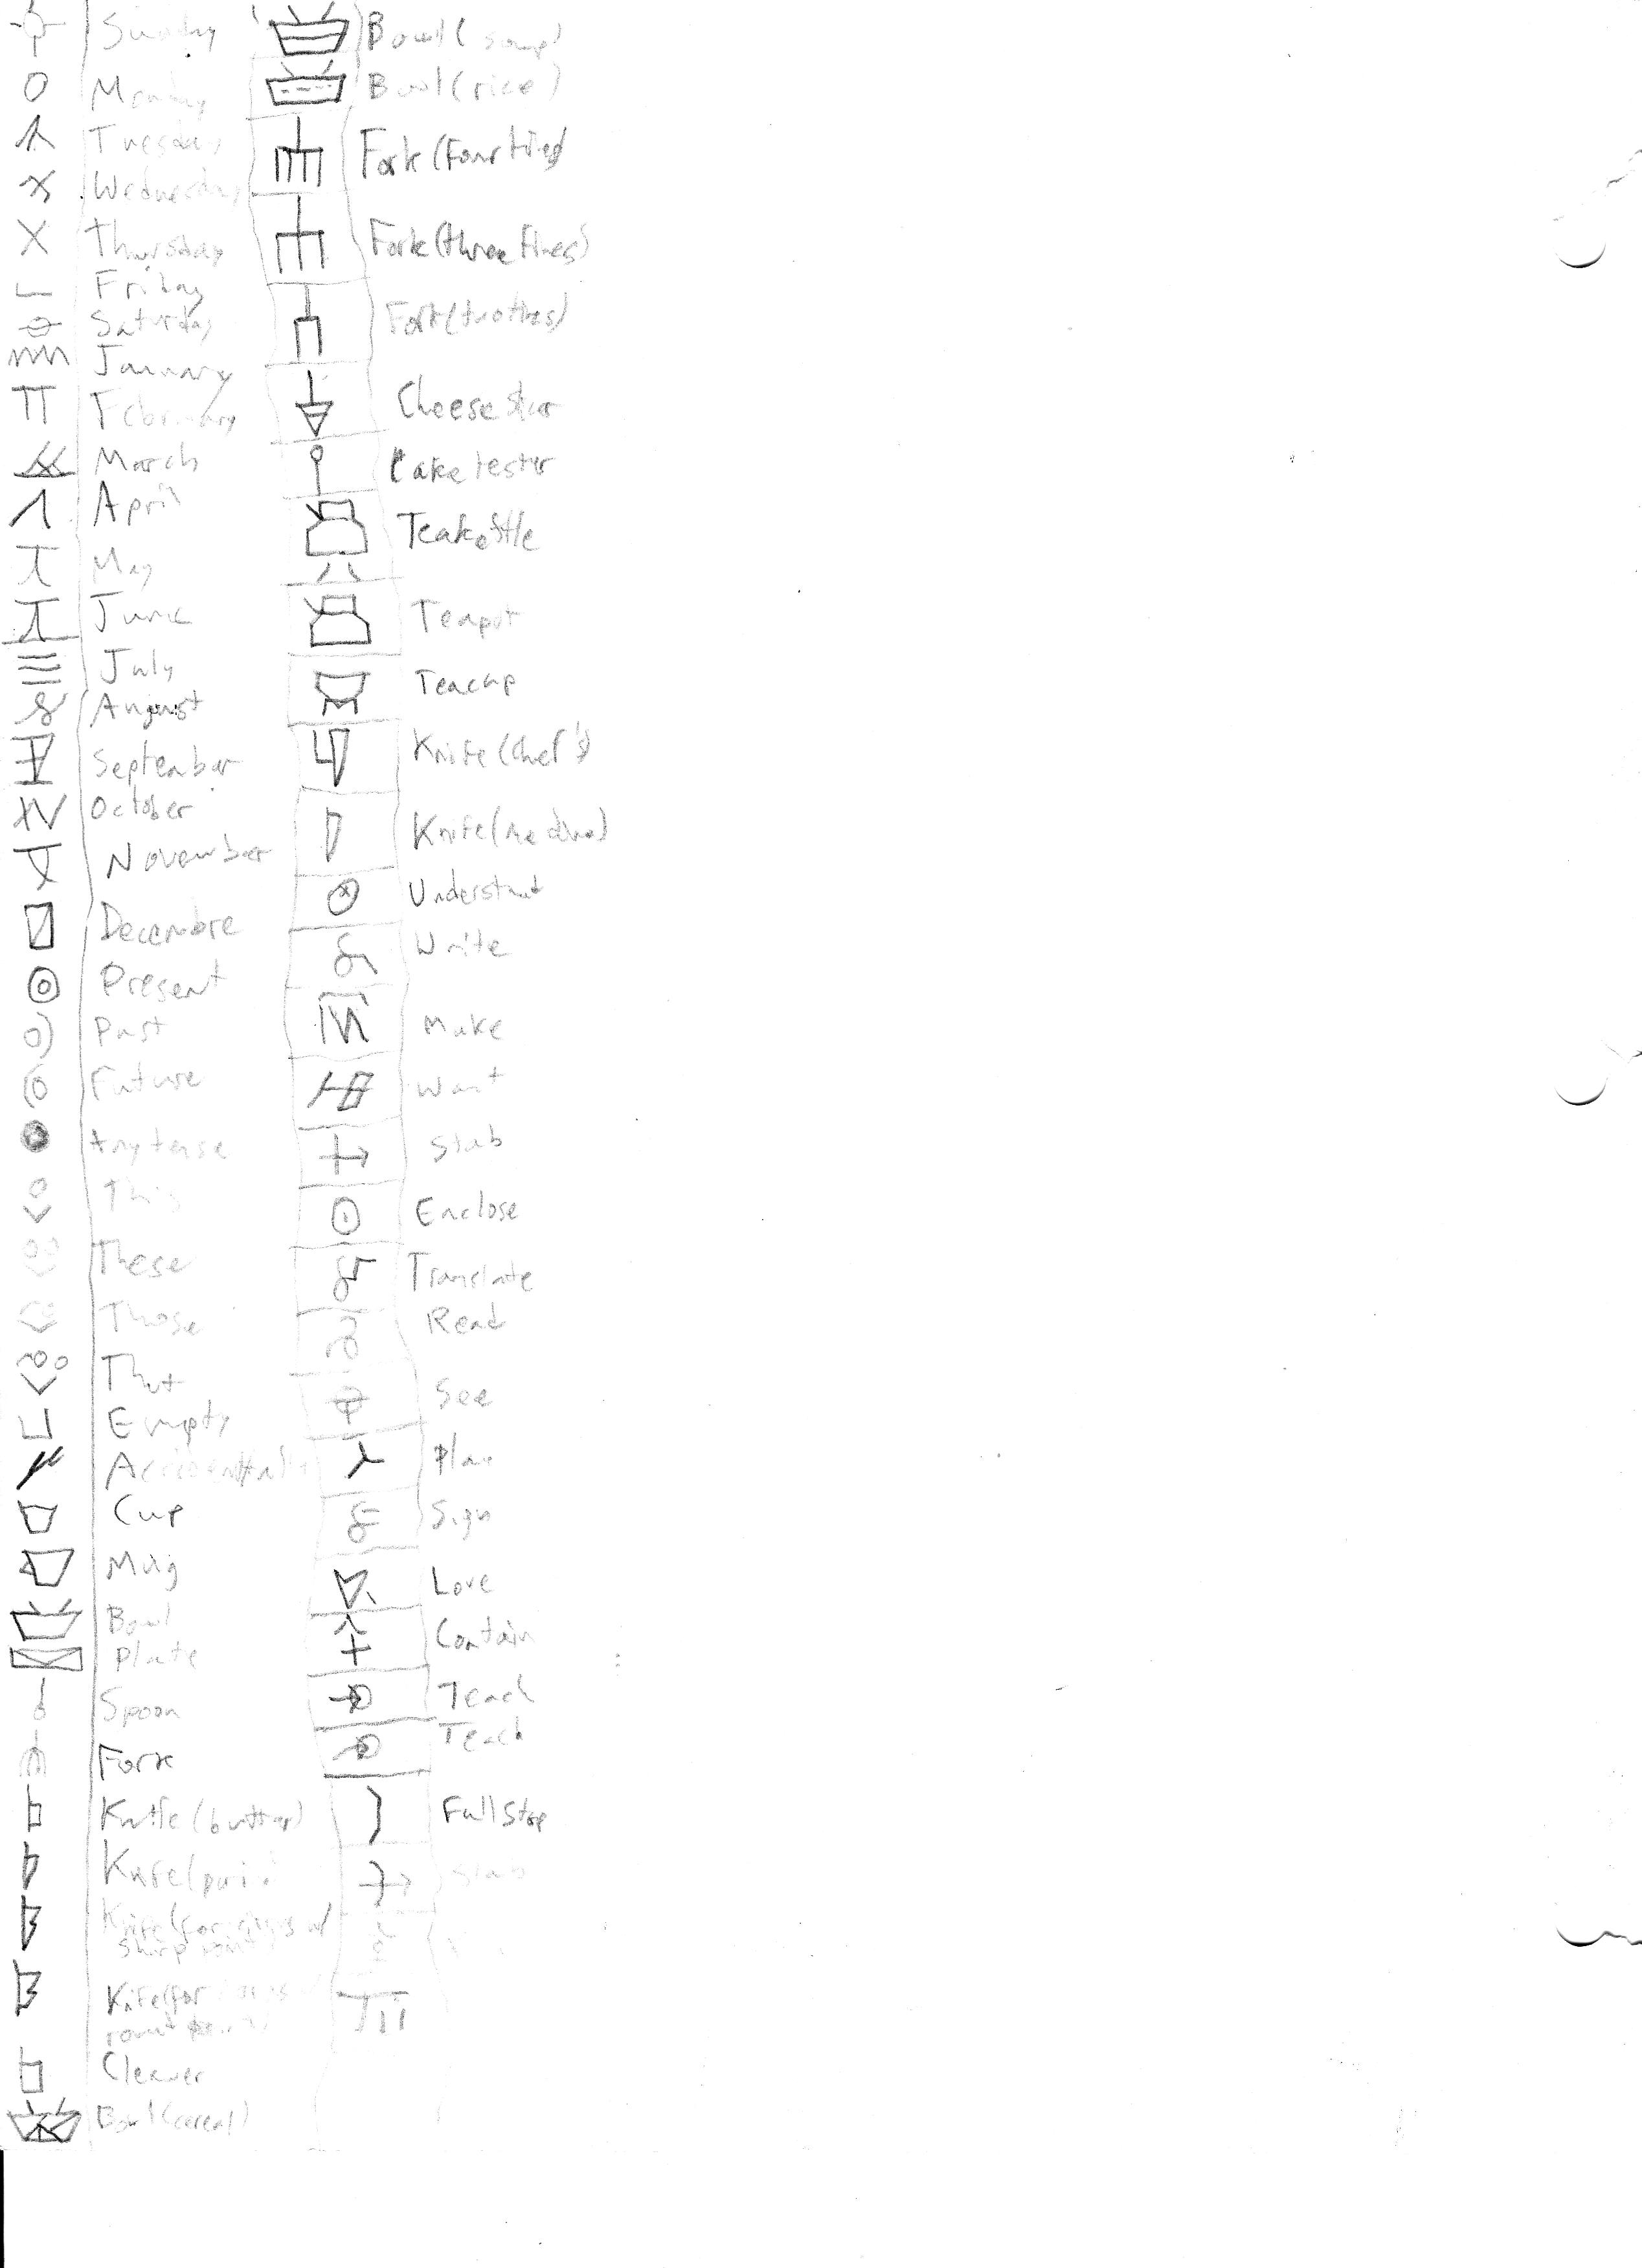 Sunday
Monday
Tuesday
Wednesday
Thursday
Friday
Saturday
January
February
March
April
May
June
July
August
September
October
November
Decembre
Present
Past
Future
Any tense
This
These
Those
That
Empty
Cup
Mug
Bowl
Plate
Spoon
Fork
Knife (butter)
Knife (
Knife (for
sharp
Knife (for
Cleaver
Bowl (cereal)
Bowl (soup)
Bowl (rice)
Fork (Four tines)
Fork (three tines)
Fork (two tines)
Cheese
Cake tester
Teakettle
Teapot
Teacup
Knife (Chef's)
Knife (
Understand
Write
Make
Want
Stab
Enclose
Translate
Read
See
Sign
Love
Contain
Teach
Teach
Full stop
Stab